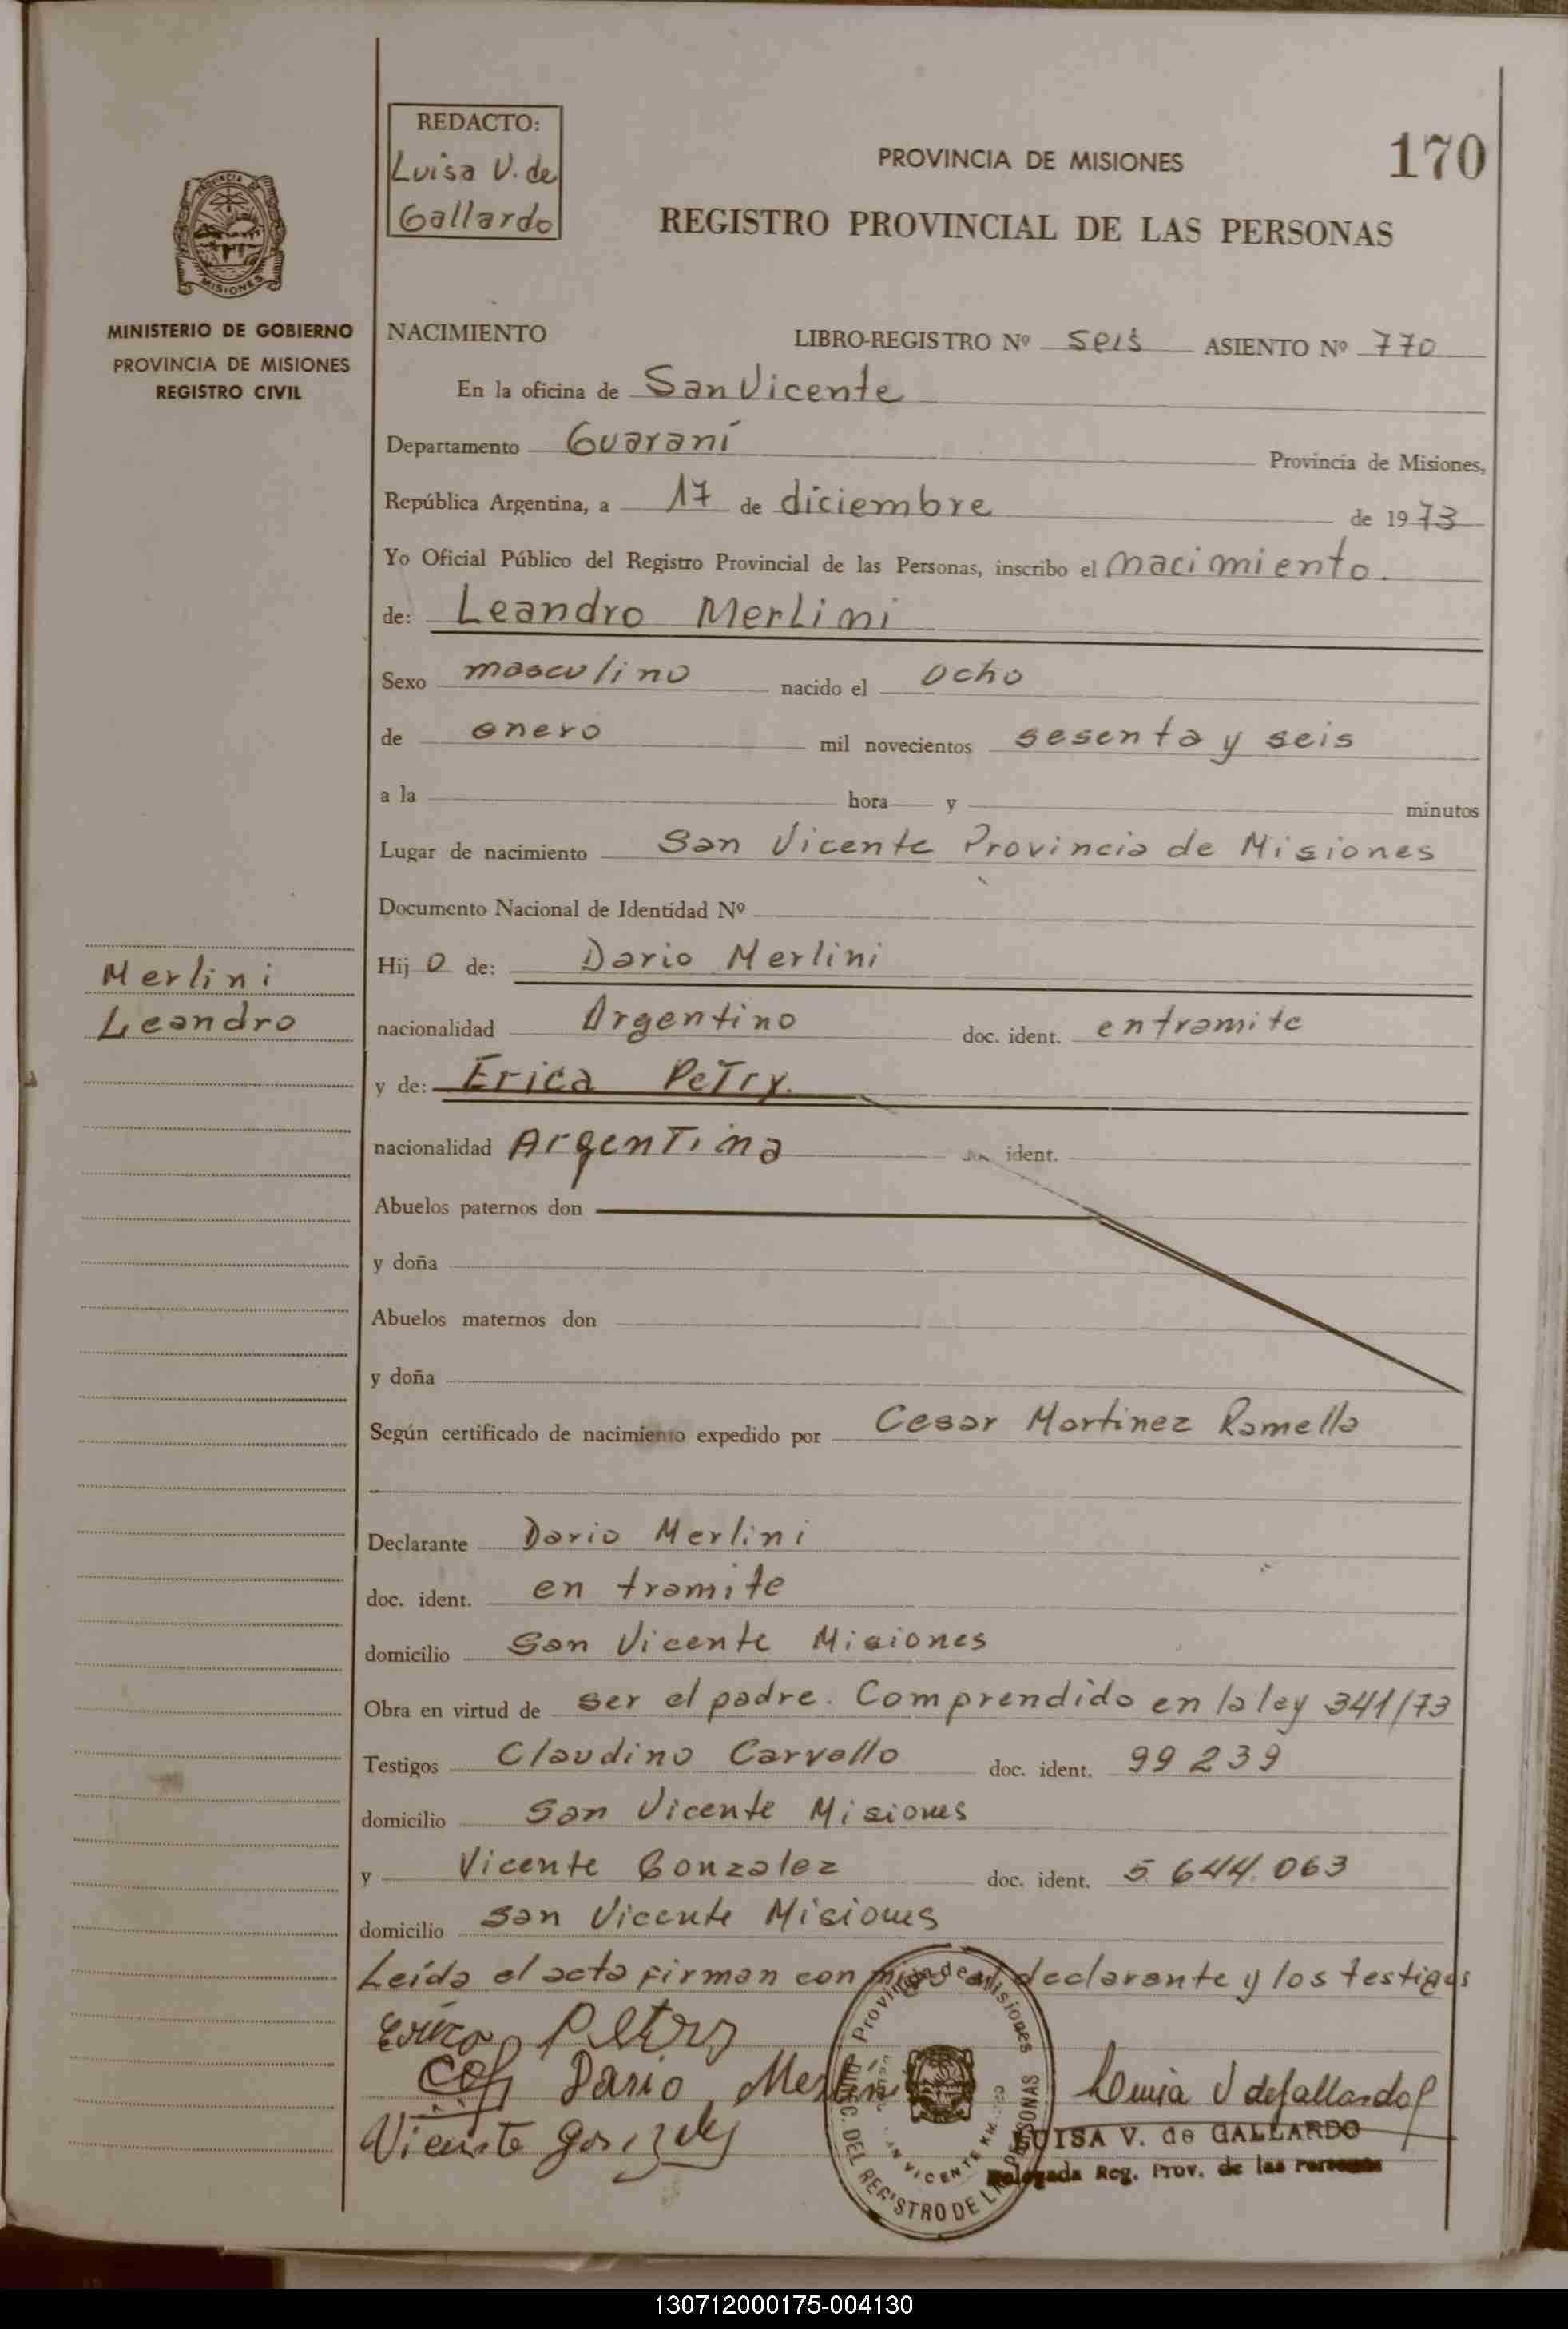 REDACTO:
Luisa V. de
Gallardo
PROVINCIA DE MISIONES
170
REGISTRO PROVINCIAL DE LAS PERSONAS
MISIONES
MINISTERIO DE GOBIERNO
PROVINCIA DE MISIONES
REGISTRO CIVIL
NACIMIENTO LIBRO-REGISTRO Nº seis ASIENTO Nº 770
En la oficina de San Vicente
Departamento Guaraní Provincia de Misiones,
República Argentina, a 17 de diciembre de 1973
Yo Oficial Público del Registro Provincial de las Personas, inscribo el nacimiento.
de: Leandro Merlini
Sexo masculino nacido el ocho
de enero mil novecientos sesenta y seis
a la hora y minutos
Lugar de nacimiento San Vicente Provincia de Misiones
Documento Nacional de Identidad Nº
Merlini
Leandro
Hijo de: Dario Merlini
nacionalidad Argentino doc. ident. en tramite
y de: Erica Petry.
nacionalidad Argentina ident.
Abuelos paternos don
y doña
Abuelos maternos don
y doña
Según certificado de nacimiento expedido por Cesar Martinez Ramella
Declarante Dario Merlini
doc. ident. en tramite
domicilio San Vicente Misiones
Obra en virtud de ser el padre. Comprendido en la ley 341/73
Testigos Claudino Carvallo doc. ident. 99239
domicilio San Vicente Misiones
y Vicente Gonzalez doc. ident. 5.644.063
domicilio San Vicente Misiones
Leída el acta firman con migo el declarante y los testigos
Erica Petry
Dario Merlini
Luisa V de Gallardo
Vicente Gonzalez
Provincia de Misiones
DEL REGISTRO DE LAS PERSONAS
SAN VICENTE
LUISA V. de GALLARDO
Delegada Reg. Prov. de las Personas
130712000175-004130